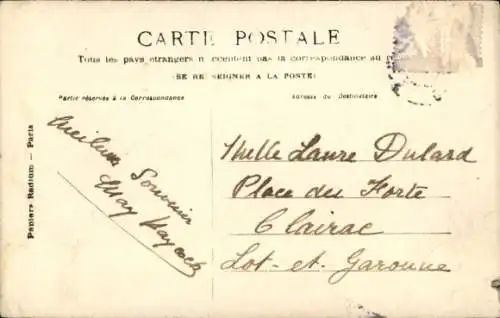 CARTE POSTALE
Tous les pays étrangers n'acceptent pas la correspondance au
(SE RENSEIGNER A LA POSTE)
Partie réservée à la Correspondance
Adresse du Destinataire
Papiers Radium — Paris
Meilleur
Souvenir
May Haycock
Melle Laure Dulard
Place du Horte
Clairac
Lot-et-Garonne